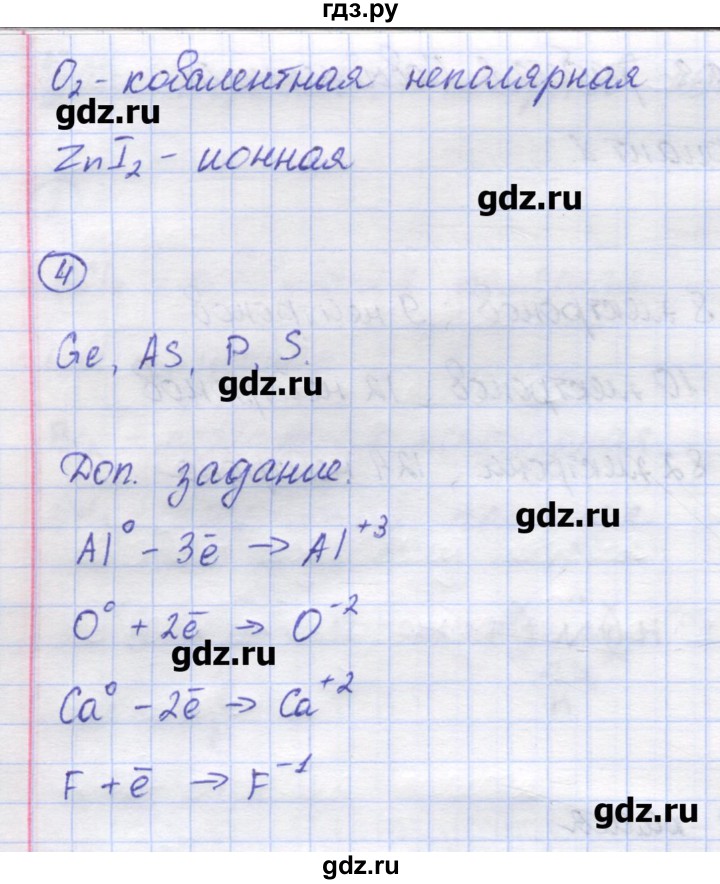 гдз.ру
O₂ - ковалентная неполярная
gdz.ru
ZnI₂ - ионная
gdz.ru
④
Ge, AS, P, S.
gdz.ru
Доп. задание.
gdz.ru
Al⁰ - 3ē → Al⁺³
O⁰ + 2ē → O⁻²
gdz.ru
Ca⁰ - 2ē → Ca⁺²
F + ē → F⁻¹
gdz.ru
gdz.ru